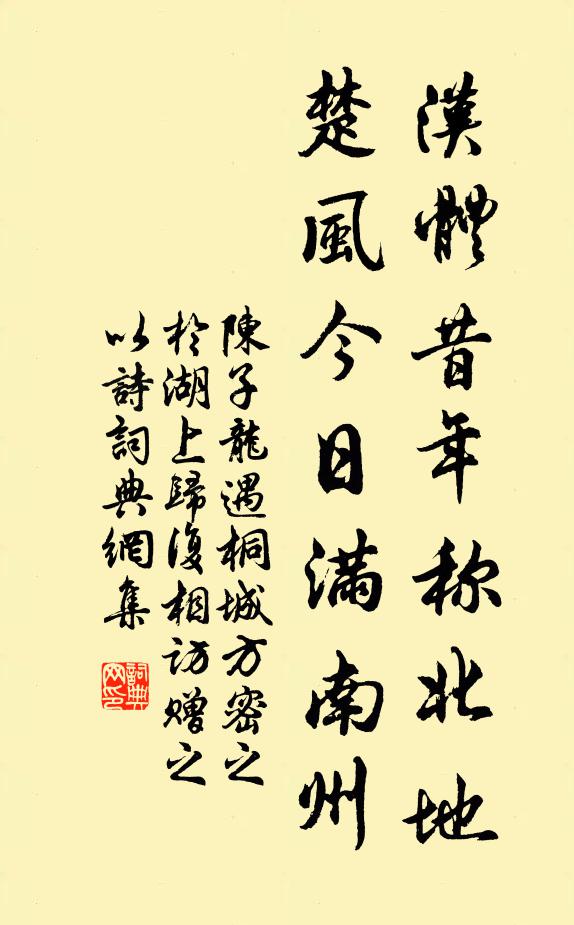 漢體昔年称北地
楚風今日满南州
陳子龍遇桐城方密之
於湖上歸復相訪贈之
以詩詞典網集
詞典
网印